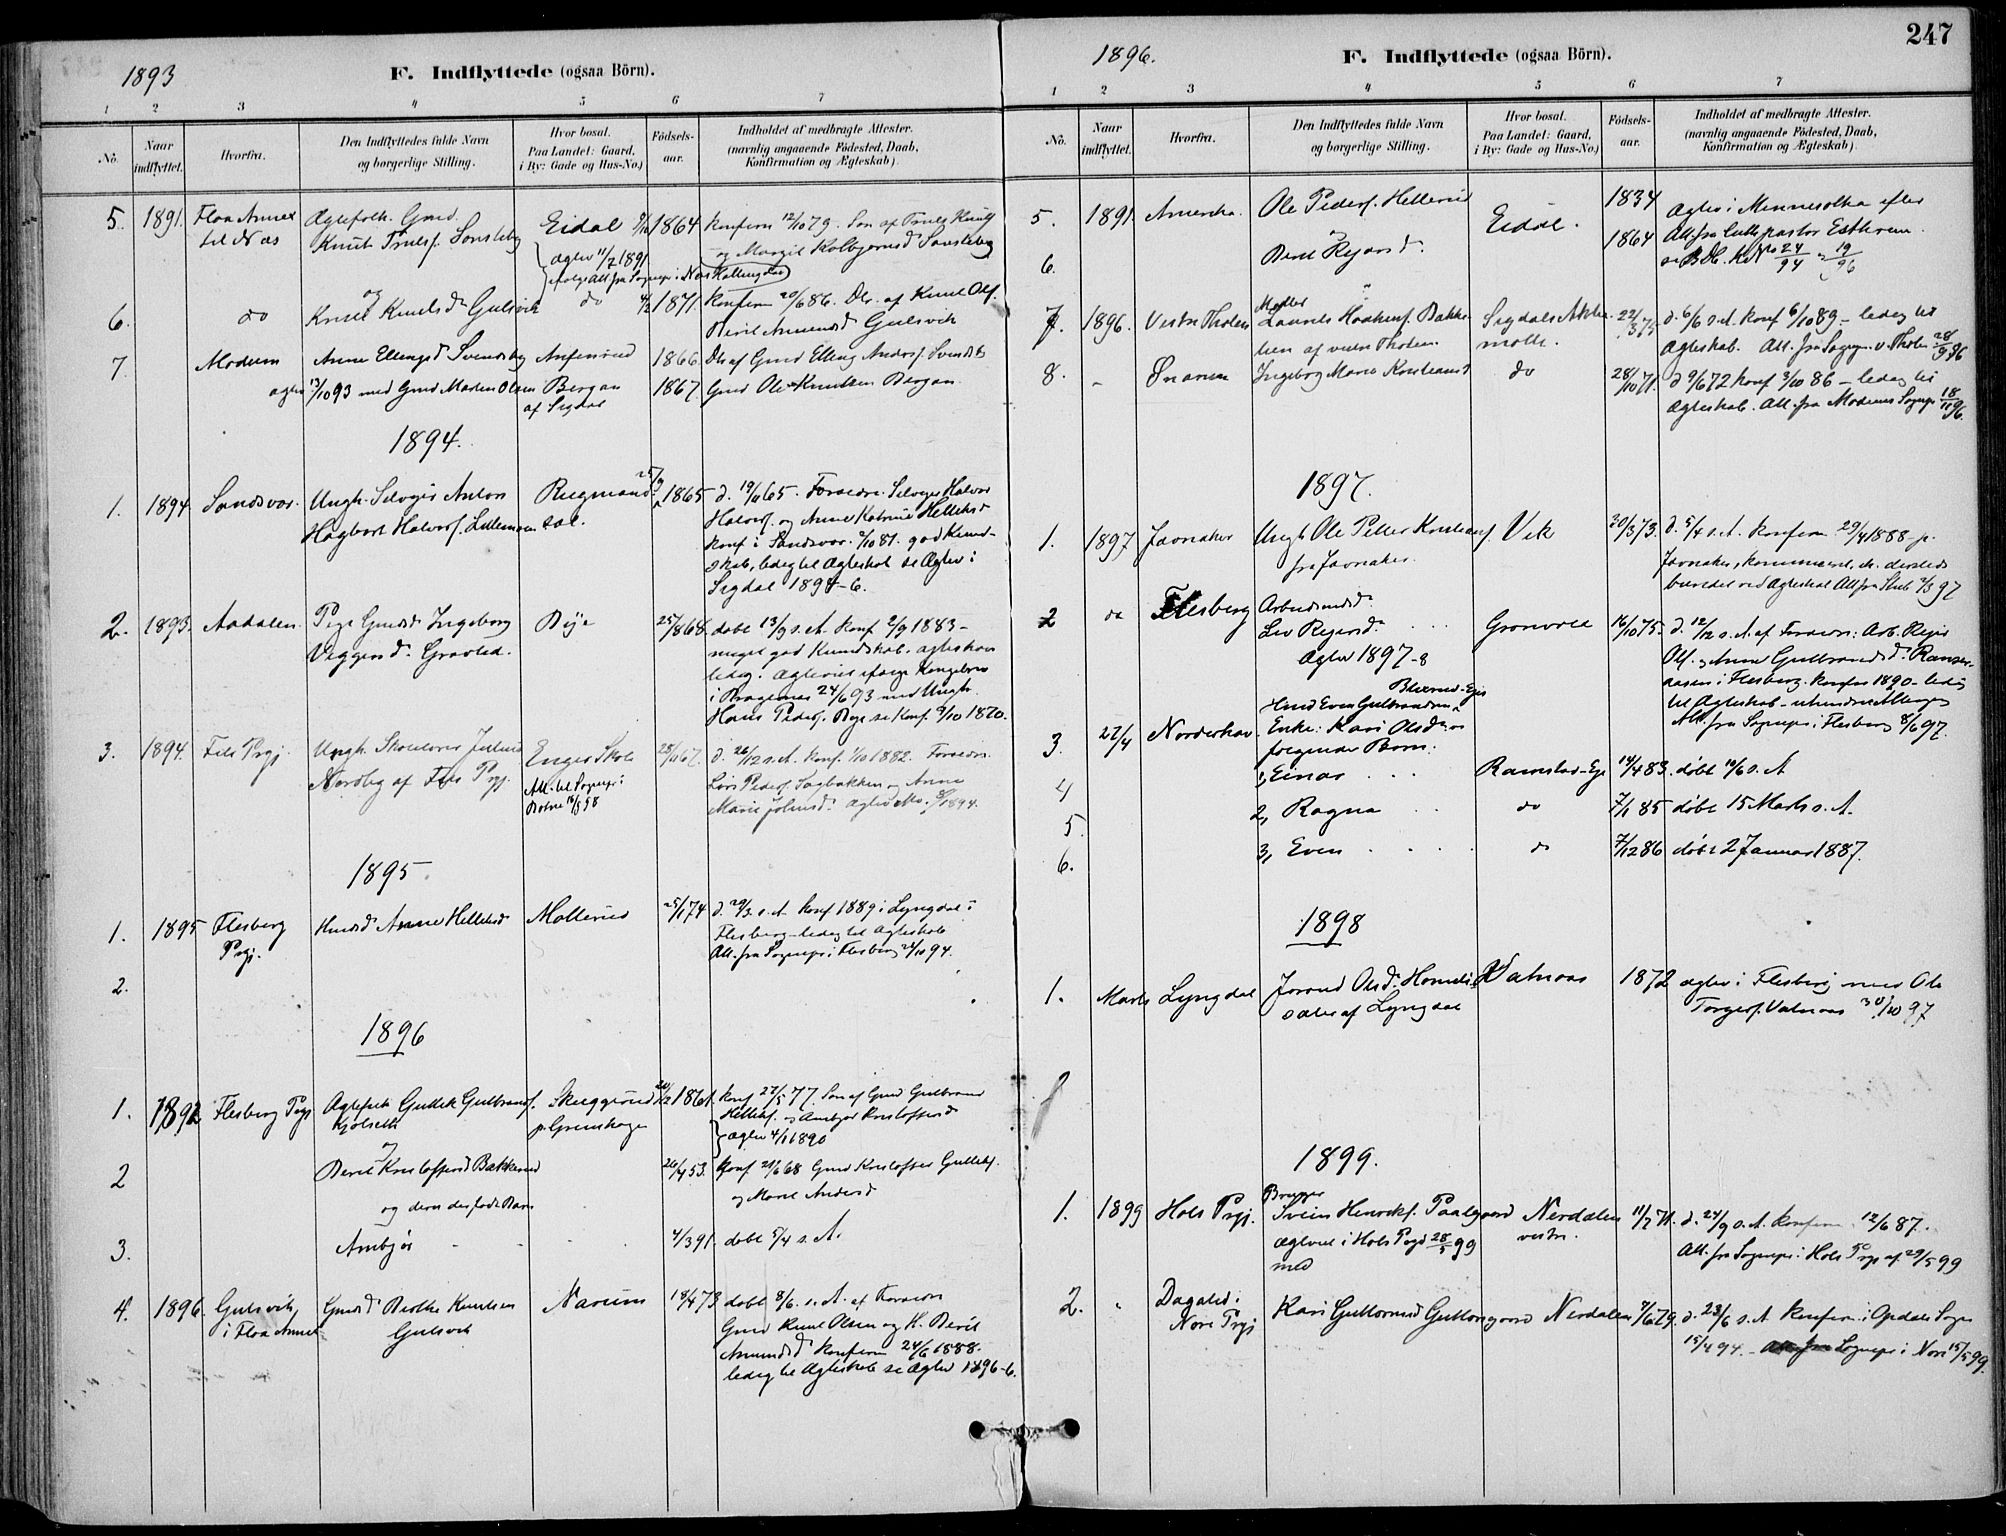 1893
F. Indflyttede (ogsaa Börn).
1 2 3 4 5 6 7
No.
Naar indflyttet.
Hvorfra.
Den Indflyttedes fulde Navn og borgerlige Stilling.
Hvor bosat. Paa Landet: Gaard, i By: Gade og Hus-No.)
Födsels-aar.
Indholdet af medbragte Attester. (navnlig angaaende Födested, Daab, Konfirmation og Ægteskab).
5. 1891. Floa Annex Ægtefolk. Gmd. Eidal 1864 Konfirm 12/10 79. Søn af Truls Knuts
til Næs Knut Trulss. og Margit Kolbjørnsd
ægtev 11/2 1891
ifølge Att. fra Sognepr. i Næs Hallingdal
6. do og Knutsd. Gulsvik do 1871. Konfirm 20/6 86. Dtr. af Knut Ols.
Berit Amundsd Gulsvik
7. Modum Anne Ellingsd Svendsby 1866. Dtr af Gmd Elling Anders. Svendsb
ægtev 13/10 93 med Gmd Marten Olsen Bergan 1867. Gmd Ole Knutsen Bergan
af Sigdal
1894.
1. 1894 Sandsvær. Ungk. Selveier Anton 1865 d. 19/11 65. Forældre. Selveier Halvor
Hagbart Halvors. dal. Halvors. og Anne Katrine Helleksd
konf i Sandsvær. 2/10 81. god Kund-
skab, ledig til Ægteskab se Ægtev:
Sigdal 1894-6.
2. 1893. Aadalen. Pige Gmdsd Ingeborg Bye 25/8 68. døbt 13/9 s.A. Konf 2/9 1883 -
Viggersd. Gravlid. meget god Kundskab. ægteskab
ledig. Ægteviet ifølge Kongebrev
i Bragernæs 24/6 93 med Ungk.
Hans Peders. Bye se Konf. 9/10 1870.
3. 1894. Fets Prgj. Ungk. Skolelærer Enger Skole 28/11 67. d. 26/12 s.A. Konf. 1/10 1882. Forældre
Nordby af Fets Prgj. Att. til Sognepr. i Lars Peders. Sagbakken og Anne
Botne 16/5 98 Marie Johnsd. Ægtev No. 8/1894.
1895.
1. 1895 Flesberg Anne Helleksd Møllerud 25/1 74 d. 29/3. s.A. Konf 1889 i Lyngdal i
Prgj. Flesberg - ledig til Ægteskab
Att. fra Sognepr. i Flesberg 24/10 94.
2.
1896
1. 1892 Flesberg Prgj Ægtefolk Gullek Gulbrands. Skuggerud 1861. Konf 27/5 77. Søn af Gmd Gulbrand
Kjølseth p Grønhage Helleks. og Ambjør Kristoffersd
ægtev 4/1 1890
2 og Berit Kristoffersd Bakkerud 26/4 53. Konf 21/6 68 Gmd Kristoffer Gulleks.
og deres døpte Barn og Marit Andersd
3. Ambjør 4/3 91. døbt 5/4 s.A.
4. 1896. Gulsvik, Gmdsd Berthe Knutsen Narum 18/4 73 døbt 8/6. s.A. af Forældre
i Floa Annex Gulsvik Gmd Knut Olsen og H. Berit
Amundsd Konfirm 24/6 1888.
ledig til Ægteskab se Ægtev 1896-6.
1896.
F. Indflyttede (ogsaa Börn).
247
1 2 3 4 5 6 7
No.
Naar indflyttet.
Hvorfra.
Den Indflyttedes fulde Navn og borgerlige Stilling.
Hvor bosat. Paa Landet: Gaard, i By: Gade og Hus-No.)
Födsels-aar.
Indholdet af medbragte Attester. (navnlig angaaende Födested, Daab, Konfirmation og Ægteskab).
5. 1891 Amerika. Ole Peders. Hellerud Eidal. 1834 Ægtev i Minnesotha efter
og 1864 Att. fra Luth. pastor Esthrem.
6. Berit Reiersd. 24/94 19/96
7. 1896. Vestre Thoten Møller Laurits Haakens. Bakke- Sigdals 22/3 75 d. 6/6 s.A. Konf 6/10 89 - ledig til
lien af vestre Thoten mølle. Ægteskab. Att. fra Sognepr. v. Thoten 28/9 96
8. - Snarum Ingeborg Marie Kristiansd do 28/10 71. d 9/6 72 Konf 3/10 86 - ledig til
Ægteskab. Att. fra Modums Sognepr 18/11 96.
1897.
1. 1897 Jævnaker Ungk Ole Petter Kristians. Vik 20/3 73. d. 5/4 s.A. Konfirm 29/4 1888 p.
fra Jævnaker. Jævnaker,
beredet ved Ægteskab Att fra Skut 2/3 97
2 do Flesberg Arbeidsmdsd. Grønvold 16/10 75. d. 12/12 s.A. af Forældre: Arb. Reier
Liv Reiersd. Ols. og Anne Gulbrandsd. Ranser-
Ægtev 1897-8 aasen i Flesberg. Konfirm 1890. ledig
til Ægteskab -
Att. fra Sognepr i Flesberg 8/6 97.
3. 27/4 Norderhov. Gmd Even Gulbrandsen Enke: Kari Olsd. og
følgende Børn:
4 1, Einar Ramstad-Eje 14/4 83. døbt 10/6 s.A
5. 2, Ragna do 7/1 85 døbt 15 Marts s.A.
6. 3, Even do 7/12 86 døbt 2 Januar 1887.
1898
1. Marts Lyngdal Jorand Olsd. Vatnaas 1872 ægtev i Flesberg med Ole
sæter af Lyngdal Torgers. Vatnaas 30/10 97
1899.
1. 1899 Hols Prgj. Brugger Svein Henriks. Paalgaard Nerdalen 11/7 71. d. 24/9 s.A. Konfirm. 12/6 87.
Ægteviet i Hols Prgj 28/5 99 vestre. Att. fra Sognepr i Hols Prgj af 29/5 99
med
2. " Dagalid i Kari Guttormsd Guttormgaard Nerdalen 7/6 79. d. 23/6 s.A Konfirm. i Opdals Sogn
Nore Prgj 15/4 94. - Att fra Sognepr i Nore 15/5 99.